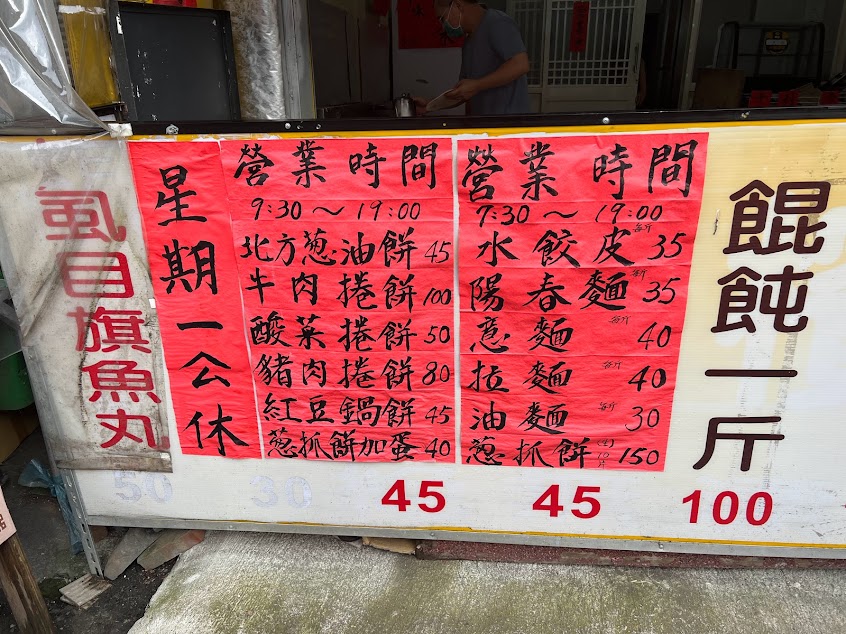 虱目旗魚丸
星期一公休
營業時間
9:30～19:00
北方蔥油餅 45
牛肉捲餅 100
酸菜捲餅 50
豬肉捲餅 80
紅豆鍋餅 45
蔥抓餅加蛋 40
營業時間
7:30～19:00
水餃皮 每斤 35
陽春麵 每斤 35
意麵 每斤 40
拉麵 每斤 40
油麵 每斤 30
蔥抓餅 150
餛飩一斤
50
30
45
45
100